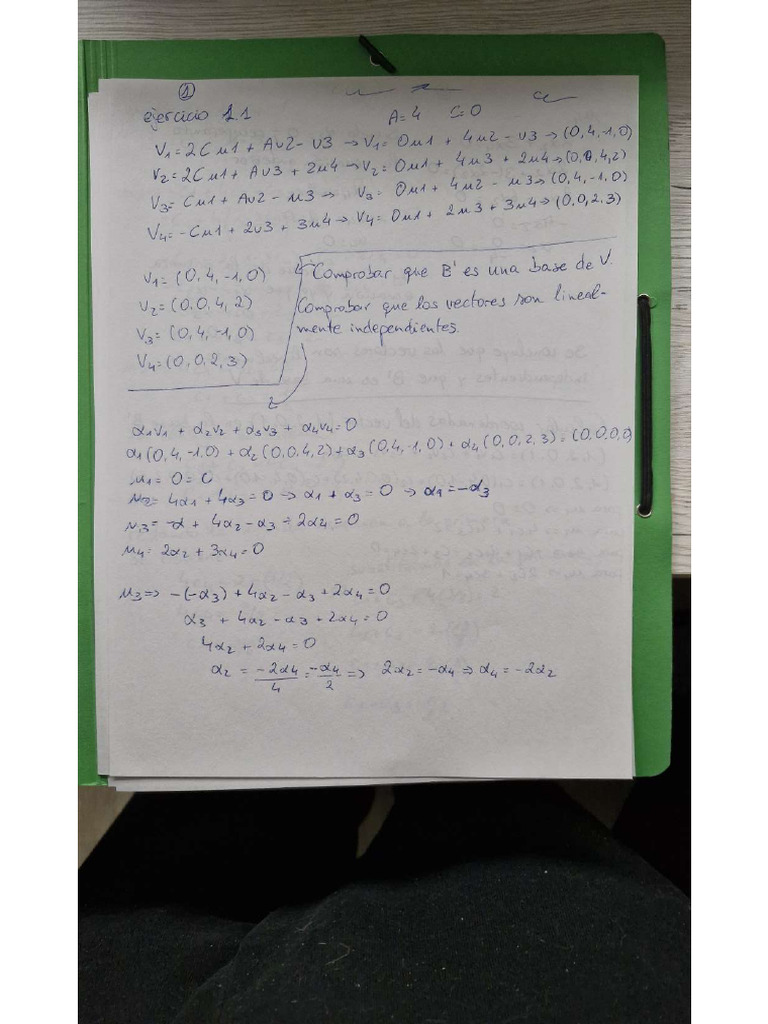 ①
ejercicio 1.1
A=4 C=0
V1=2Cu1 + Au2 - u3 → V1=0u1 + 4u2 - u3 → (0,4,-1,0)
V2=2Cu1 + Au3 + 2u4 → V2=0u1 + 4u3 + 2u4 → (0,0,4,2)
V3=Cu1 + Au2 - u3 → V3=0u1 + 4u2 - u3 → (0,4,-1,0)
V4=-Cu1 + 2u3 + 3u4 → V4=0u1 + 2u3 + 3u4 → (0,0,2,3)
V1=(0,4,-1,0)
V2=(0,0,4,2)
V3=(0,4,-1,0)
V4=(0,0,2,3)
Comprobar que B' es una base de V.
Comprobar que los vectores son lineal-
mente independientes.
α1v1 + α2v2 + α3v3 + α4v4=0
α1(0,4,-1,0) + α2(0,0,4,2)+α3(0,4,-1,0)+α4(0,0,2,3)=(0,0,0,0)
u1=0=0
u2=4α1+4α3=0 → α1+α3=0 → α1=-α3
u3=-α+4α2-α3+2α4=0
u4=2α2+3α4=0
u3 ⇒ -(-α3)+4α2-α3+2α4=0
α3+4α2-α3+2α4=0
4α2+2α4=0
α2=-2α4/4=-α4/2 ⇒ 2α2=-α4 ⇒ α4=-2α2